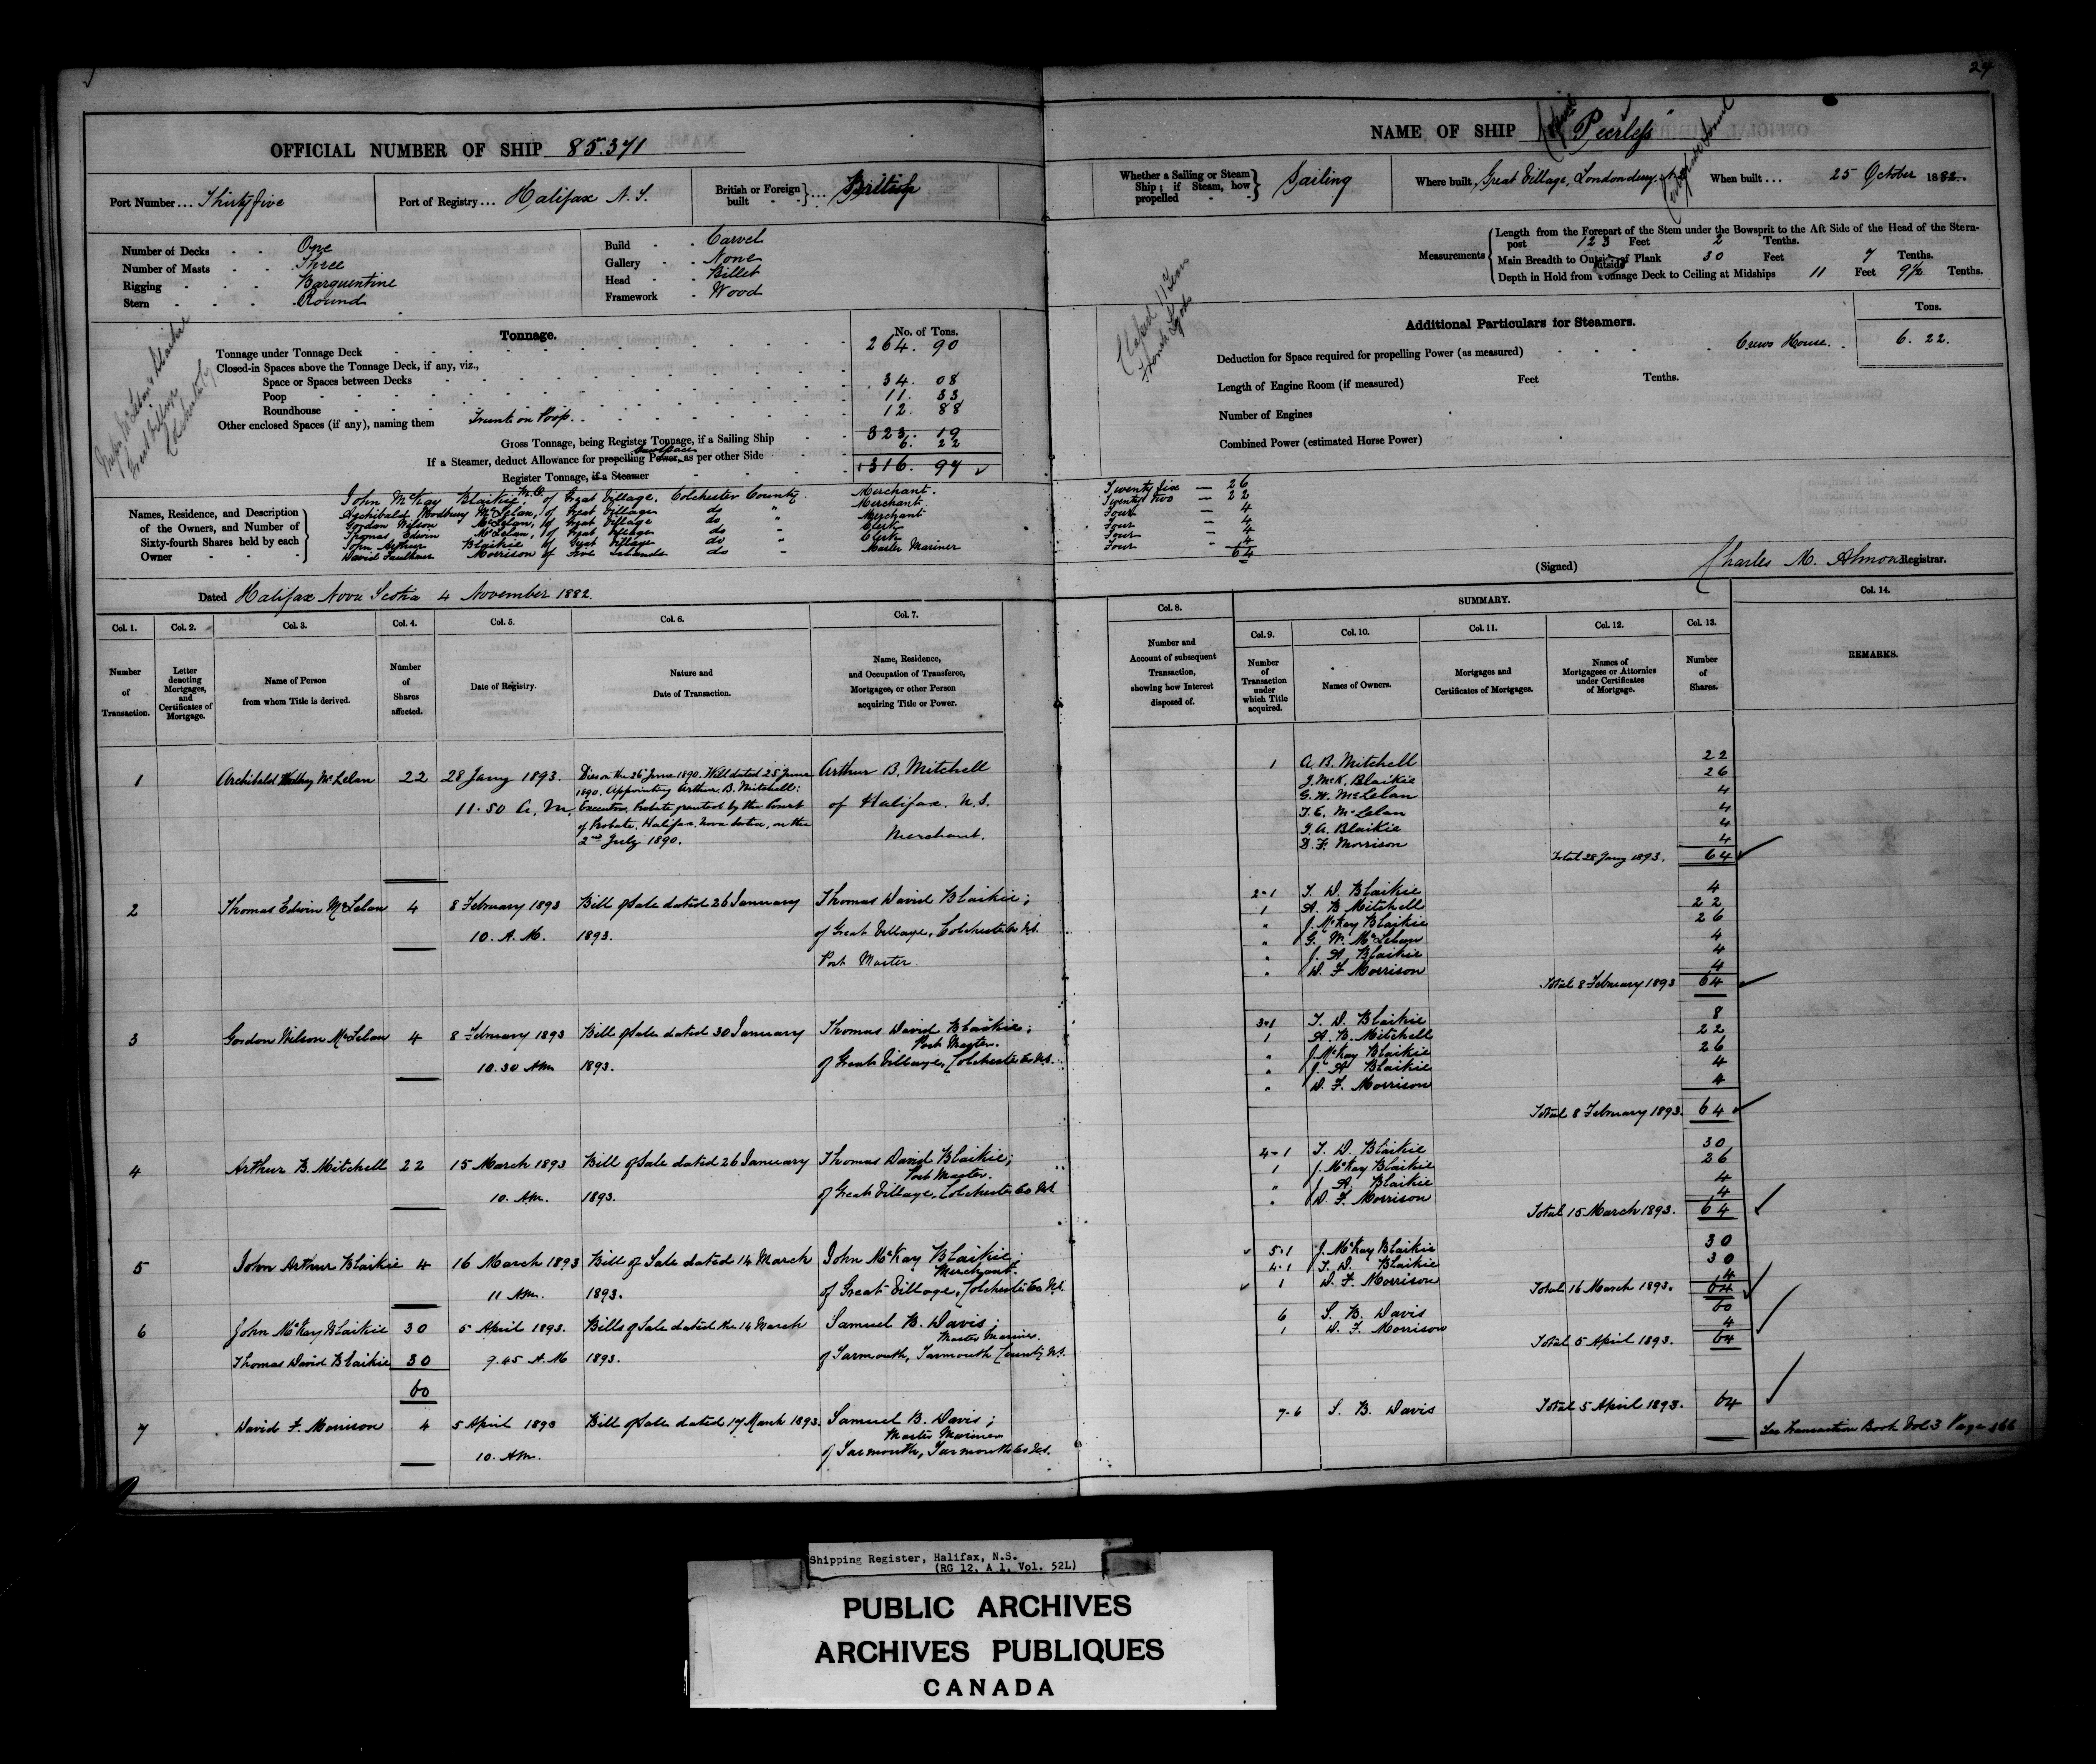 24
OFFICIAL NUMBER OF SHIP 85.371
NAME OF SHIP "Peerless"
Port Number... Thirty five
Port of Registry... Halifax N. S.
British or Foreign built } ... British
Whether a Sailing or Steam Ship; if Steam, how propelled } Sailing
Where built Great Village, Londonderry, N.S.
When built... 25 October 1882.
Number of Decks One
Number of Masts Three
Rigging Barquentine
Stern Round
Build Carvel
Gallery None
Head Billet
Framework Wood
Measurements
Length from the Forepart of the Stem under the Bowsprit to the Aft Side of the Head of the Stern-
post 123 Feet 2 Tenths.
Main Breadth to Outside of Plank 30 Feet 7 Tenths.
Depth in Hold from Tonnage Deck to Ceiling at Midships 11 Feet 9½ Tenths.
Tonnage. No. of Tons.
Tonnage under Tonnage Deck 264. 90
Closed-in Spaces above the Tonnage Deck, if any, viz.,
Space or Spaces between Decks
Poop 34. 08
Roundhouse 11. 33
Other enclosed Spaces (if any), naming them Trunk on Poop. 12. 88
Gross Tonnage, being Register Tonnage, if a Sailing Ship 323. 19
If a Steamer, deduct Allowance for propelling Power, as per other Side 6. 22
Register Tonnage, if a Steamer 316. 97
Additional Particulars for Steamers. Tons.
Deduction for Space required for propelling Power (as measured) Crews House. 6. 22.
Length of Engine Room (if measured) Feet Tenths.
Number of Engines
Combined Power (estimated Horse Power)
Names, Residence, and Description
of the Owners, and Number of
Sixty-fourth Shares held by each
Owner
John McKay Blaikie, M.O. of Great Village, Colchester County. Merchant. Twenty six — 26
Archibald Woodbury McLelan, of Great Village do " Merchant Twenty two — 22
Gordon Wilson McLelan, of Great Village do Merchant Four — 4
Thomas Edwin McLelan, of Great Village do Clerk Four — 4
John Arthur Blaikie of Great Village do Clerk Four — 4
David Faulkner Morrison of Five Islands do Master Mariner Four - 4
64
(Signed) Charles M. Almon Registrar.
Dated Halifax Nova Scotia 4 November 1882.
SUMMARY.
Col. 1. Col. 2. Col. 3. Col. 4. Col. 5. Col. 6. Col. 7. Col. 8. Col. 9. Col. 10. Col. 11. Col. 12. Col. 13. Col. 14.
Number of Transaction.
Letter denoting Mortgages, and Certificates of Mortgage.
Name of Person from whom Title is derived.
Number of Shares affected.
Date of Registry.
Nature and Date of Transaction.
Name, Residence, and Occupation of Transferee, Mortgagee, or other Person acquiring Title or Power.
Number and Account of subsequent Transaction, showing how Interest disposed of.
Number of Transaction under which Title acquired.
Names of Owners.
Mortgages and Certificates of Mortgages.
Names of Mortgagees or Attornies under Certificates of Mortgage.
Number of Shares.
REMARKS.
1 Archibald Woodbury McLelan 22 28 Jany 1893. Dies on the 26 June 1890. Will dated 25 June Arthur B. Mitchell
1890. Appointing Arthur. B. Mitchell:
11.50 A. M. Executor, Probate granted by the Court of Halifax. N.S.
of Probate, Halifax, Nova Scotia, on the
2nd July 1890. Merchant.
1 A. B. Mitchell 22
J. McK. Blaikie 26
G. W. McLelan 4
T. E. McLelan 4
J. A. Blaikie 4
D. F. Morrison 4
Total 28 Jany 1893. 64
2 Thomas Edwin McLelan 4 8 February 1893 Bill of Sale dated 26 January Thomas David Blaikie;
10. A. M. 1893. of Great Village, Colchester Co N.S.
Post Master
2-1 T. D. Blaikie 4
1 A. B. Mitchell 22
" J. McKay Blaikie 26
" G. W. McLelan 4
" J. A. Blaikie 4
" D. F. Morrison 4
Total 8 February 1893 64
3 Gordon Wilson McLelan 4 8 February 1893 Bill of Sale dated 30 January Thomas David Blaikie;
Post Master.
10.30 AM 1893. of Great Village, Colchester Co N.S.
3-1 T. D. Blaikie 8
1 A. B. Mitchell 22
" J. McKay Blaikie 26
" J. A Blaikie 4
" D. F. Morrison 4
Total 8 February 1893. 64
4 Arthur B. Mitchell 22 15 March 1893 Bill of Sale dated 26 January Thomas David Blaikie;
Post Master.
10. AM. 1893. of Great Village, Colchester Co N.S
4-1 T. D. Blaikie 30
1 J. McKay Blaikie 26
" J. A. Blaikie 4
" D. F. Morrison 4
Total 15 March 1893. 64
5 John Arthur Blaikie 4 16 March 1893 Bill of Sale dated 14 March John McKay Blaikie;
Merchant.
11 AM. 1893. of Great Village, Colchester Co N.S.
5-1 J. McKay Blaikie 30
4-1 T. D. Blaikie 30
1 D. F. Morrison 4
Total 16 March 1893. 64
6 John McKay Blaikie 30 5 April 1893. Bills of Sale dated the 14 March Samuel B. Davis;
Master Mariner.
Thomas David Blaikie 30 9.45 A.M 1893. of Yarmouth, Yarmouth County N.S.
60
6 S. B. Davis 60
1 D. F. Morrison 4
Total 5 April 1893. 64
7 David F. Morrison 4 5 April 1893 Bill of Sale dated 17 March 1893. Samuel B. Davis;
Master Mariner
10. AM. of Yarmouth, Yarmouth Co N.S.
7-6 S. B. Davis Total 5 April 1893. 64
See Transaction Book Vol 3 Page 166
Shipping Register, Halifax, N.S.
(RG 12, A 1, Vol. 52L)
PUBLIC ARCHIVES
ARCHIVES PUBLIQUES
CANADA